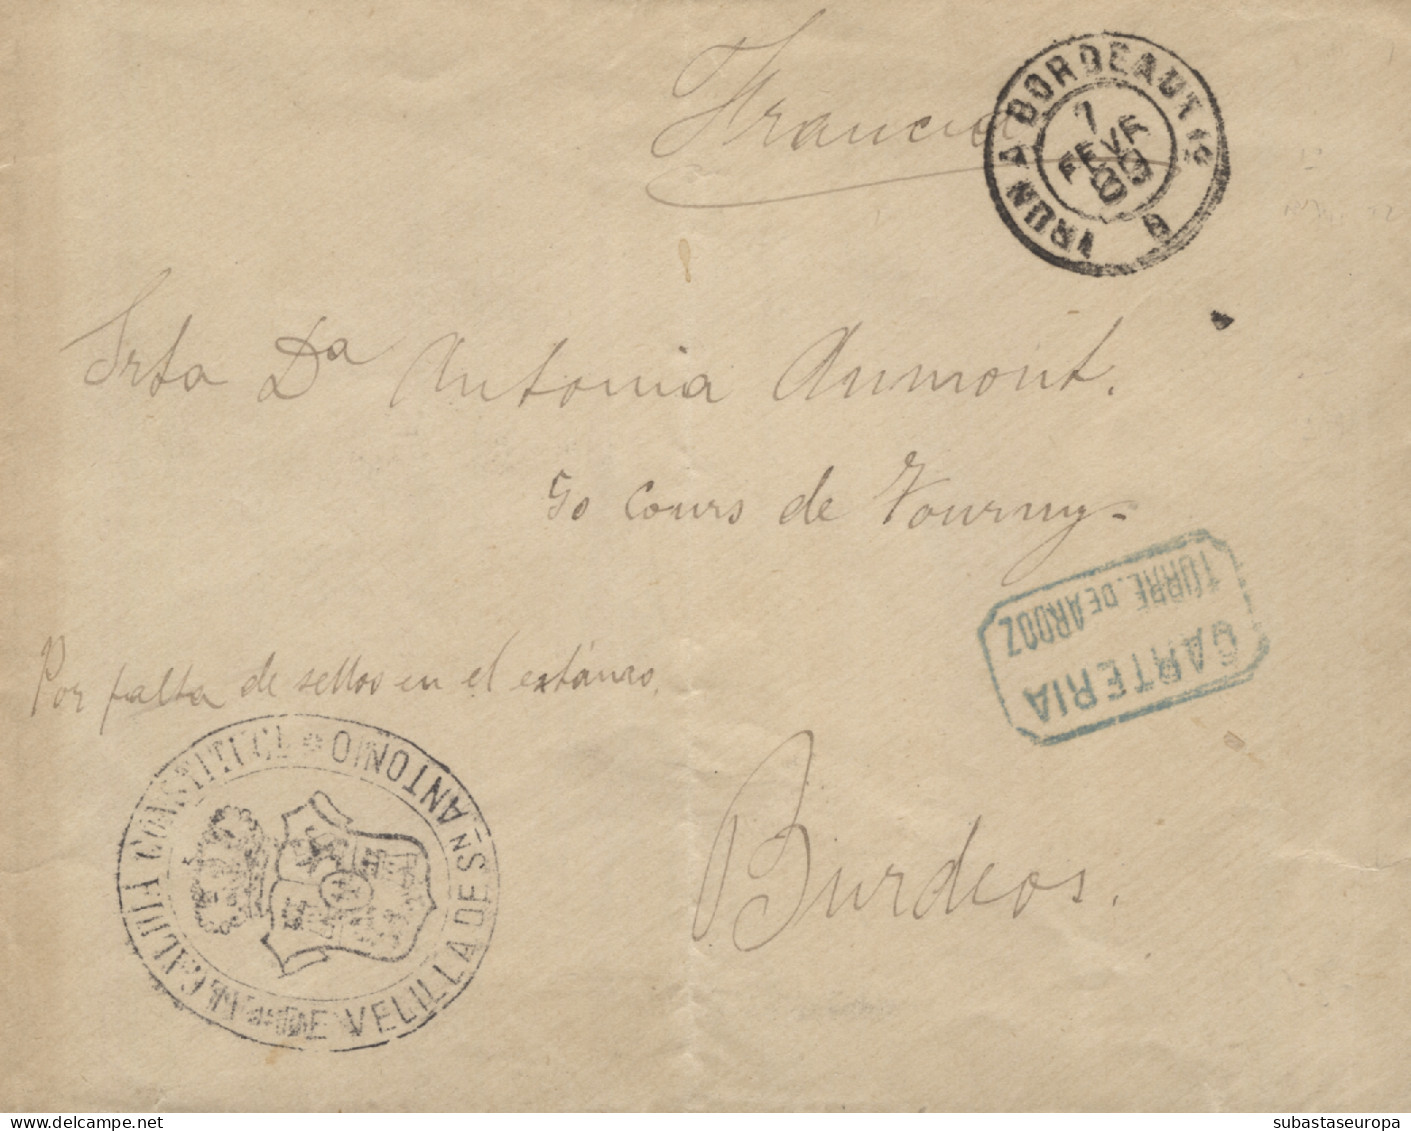 Francia
IRUN A BORDEAUX 1º
7
FEVR
99
B
Srta Dª Antonia Aumont.
50 Cours de Tourny=
CARTERIA
TORRE. DE ARDOZ
Por falta de sellos en el estanco.
ALCALDIA CONSTITUCL
* DE VELILLA DE Sn ANTONIO *
Burdeos.
subastaseuropa